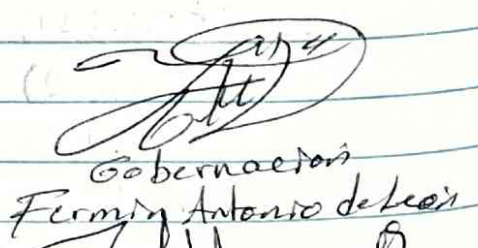 Gobernacion
Fermin Antonio de León